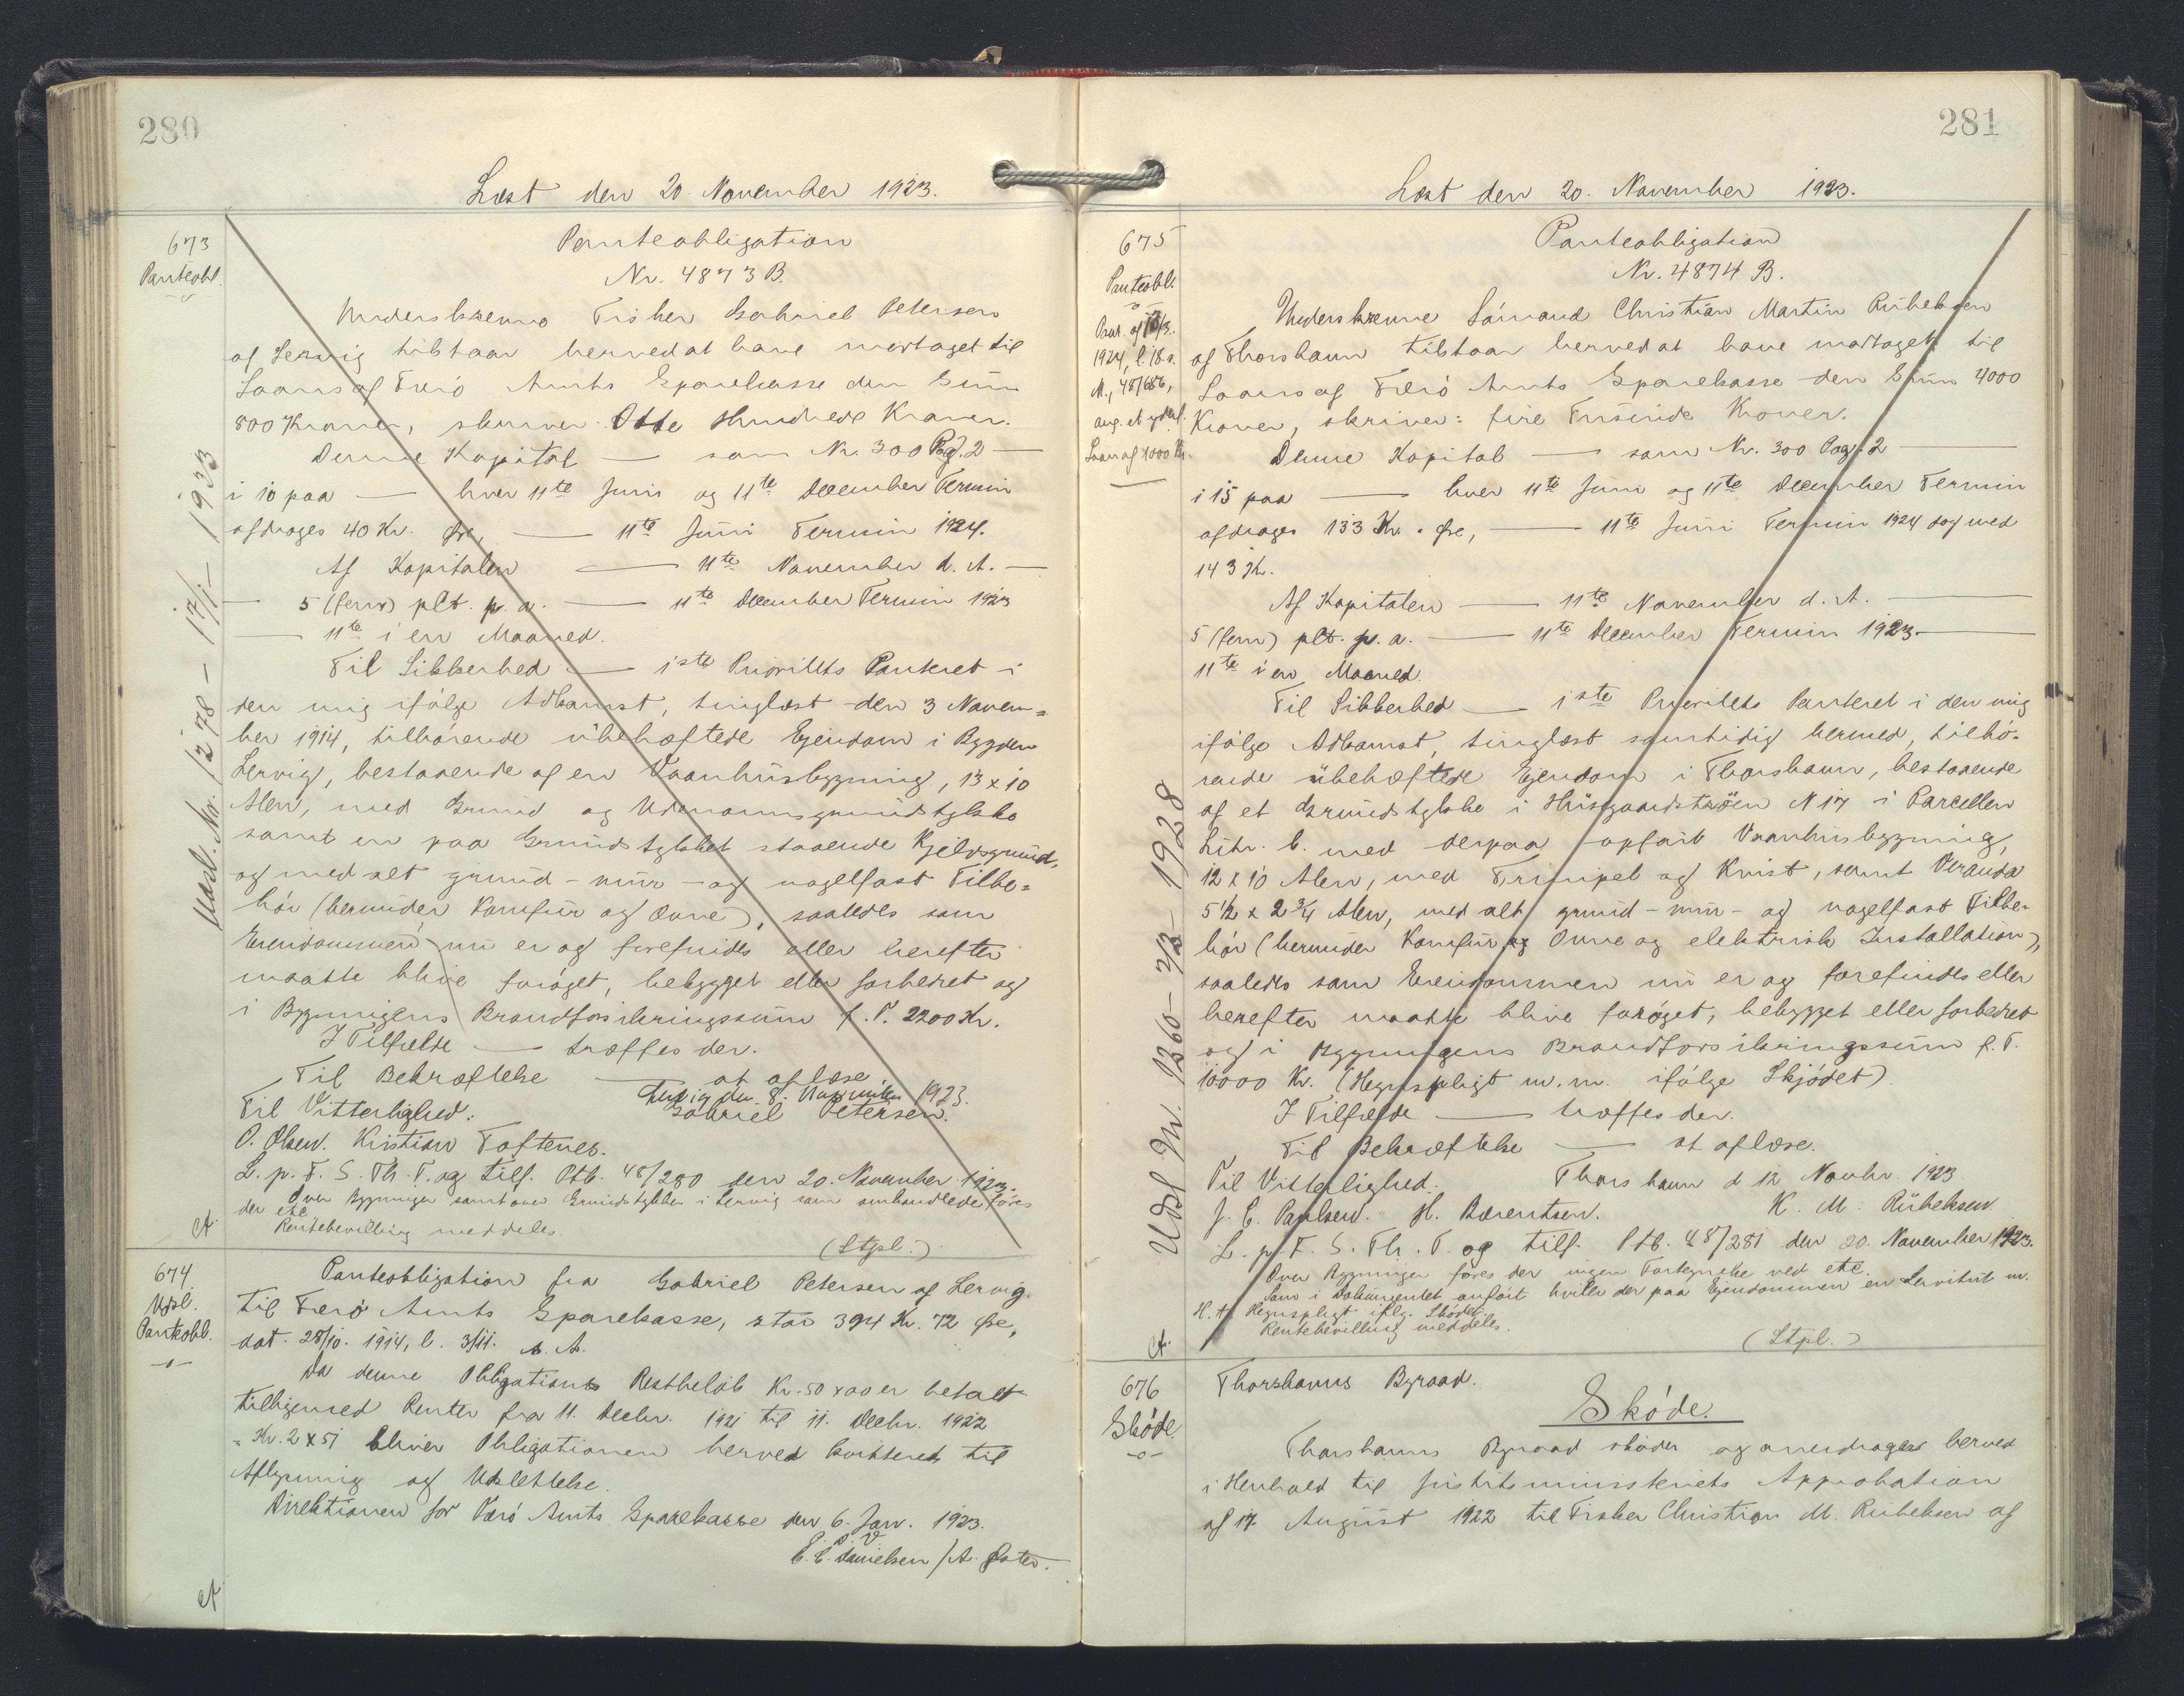 280
Læst den 20 November 1923.
673
Panteobl.
Udsl. No. 1278 - 17/1 - 1933
Panteobligation
Nr. 4873 B.
Underskrevne Fisker Gabriel Petersen
af Lervig tilstaar herved at have modtaget til
Laans af Færø Amts Sparekasse den Sum
800 Kroner, skriver Otte Hundrede Kroner.
Denne Kapital — som Nr. 300 Pag. 2 —
i 10 paa — hver 11te Juni og 11te December Termin
afdrages 40 Kr. Øre, — 11te Juni Termin 1924.
Af Kapitalen — 11te November d. A. —
— 5 (fem) pCt. p. a. — 11te December Termin 1923
— 11te i en Maaned.
Til Sikkerhed — 1ste Prioritets Panteret i
den mig ifølge Adkomst, tinglæst den 3 Novem=
ber 1914, tilhørende ubehæftede Ejendom i Bygden
Lervig, bestaaende af en Vaanhusbygning, 13 x 10
Alen, med Grund og Udenomsgrundstykke
samt en paa Grundstykket staaende Kjeldsgrund,
og med alt grund- mur- og nagelfast Tilbe=
hør (herunder Komfur og Ovne), saaledes som
Ejendommen nu er og forefindes eller herefter
maatte blive forøget, bebygget eller forbedret og
i Bygningens Brandforsikringssum f. T. 2200 Kr.
I Tilfælde — træffes der.
Til Bekræftelse — at aflæse
Lervig den 8. November 1923.
Til Vitterlighed: Gabriel Petersen.
O. Olsen. Kristian Toftenes.
L. p. F. S. Th. T. og tilf. Ptb. 48/280 den 20. November 1923.
Over Bygningen samt over Grundstykket i Lervig som omhandlede føres
der etc
Rentebevilling meddeles
(Stpl.)
A.
674
Udsl.
Panteobl.
Panteobligation fra Gabriel Petersen af Lervig
til Færø Amts Sparekasse, stor 394 Kr. 72 Øre,
dat. 28/10. 1914, l. 3/11. s. A.
Da denne Obligations Restbeløb Kr. 50 x 00 er betalt
tilligemed Renter fra 11. Decbr. 1921 til 11. Decbr. 1922
= Kr. 2 x 51 bliver Obligationen herved kvitteret til
Aflysning og Udslettelse.
Direktionen for Færø Amts Sparekasse den 6. Jan. 1923.
P. D. V.
C. C. Danielsen / A.
A
281
Læst den 20. November 1923.
675
Panteobl.
1924, l. 18 s.
M., 48/686,
ang. et yderl.
Laan af 4000 Kr.
Udsl No. 1360 - 7/3 - 1928
Panteobligation
Nr. 4874 B.
Underskrevne Sømand Christian Martin Rubeksen
af Thorshavn tilstaar herved at have modtaget til
Laans af Færø Amts Sparekasse den Sum 4000
Kroner, skriver: fire Tusinde Kroner.
Denne Kapital — som Nr. 300 Pag. 2 —
i 15 paa — hver 11te Juni og 11te December Termin
afdrages 133 Kr. Øre, — 11te Juni Termin 1924 dog med
143 Kr.
Af Kapitalen — 11te November d. A. —
5 (fem) pCt. p. a. — 11te December Termin 1923 —
11te i en Maaned.
Til Sikkerhed — 1ste Prioritets Panteret i den mig
ifølge Adkomst, tinglæst samtidig hermed, tilhø-
rende ubehæftede Ejendom i Thorshavn, bestaaende
af et Grundstykke i Husgaardstrøen N 17 i Parcellen
Litr. b. med derpaa opført Vaanhusbygning,
12 x 10 Alen, med Trempel og Kvist, samt Veranda
5 1/2 x 2 3/4 Alen, med alt grund- mur- og nagelfast Tilbe-
hør (herunder Komfur og Ovne og elektrisk Installation),
saaledes som Ejendommen nu er og forefindes eller
herefter maatte blive forøget, bebygget eller forbedret
og i Bygningens Brandforsikringssum f. T.
10000 Kr. (Hegnspligt m. m. ifølge Skjødet).
I Tilfælde — træffes der.
Til Bekræftelse — at aflæse.
Til Vitterlighed. Thorshavn d 12 Novbr. 1923
J. C. Paulsen. H. Bærentsen. K. M. Rubeksen
L. p. F. S. Th. T. og tilf. Ptb. 48/281 den 20. November 1923.
Over Bygningen føres der ingen Fortegnelse ved etc.
Som i Dokumentet anført hviler der paa Ejendommen en Servitut m.
H. t. Hegnspligt iflg. Skødet.
Rentebevilling meddeles.
(Stpl.)
A.
676
Skøde
Thorshavns Byraad.
Skøde.
Thorshavns Byraad skøder og overdrager herved
i Henhold til Justitsministeriets Approbation
af 17. August 1922 til Fisker Christian M. Rubeksen af